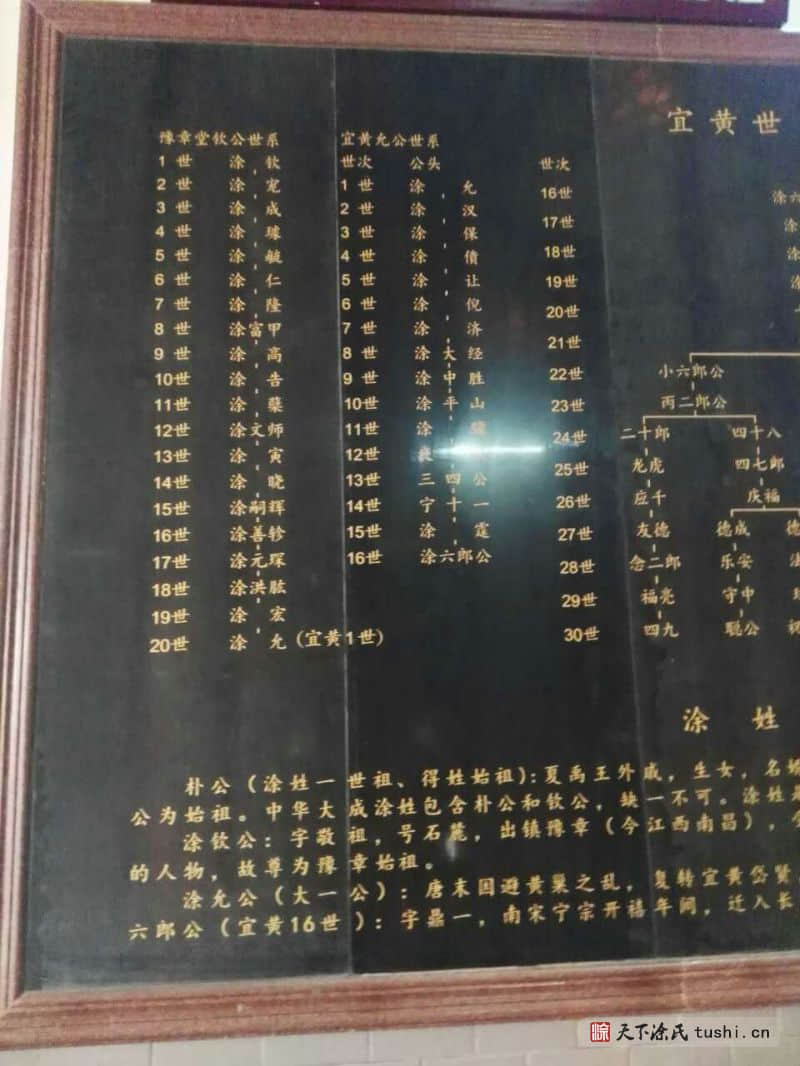 宜黄世
豫章堂钦公世系
1世 涂钦
2世 涂宠
3世 涂成
4世 涂璩
5世 涂毓
6世 涂仁
7世 涂隆
8世 涂富甲
9世 涂高
10世 涂告
11世 涂蘖
12世 涂文师
13世 涂寅
14世 涂晓
15世 涂嗣辉
16世 涂善轸
17世 涂元琛
18世 涂洪肱
19世 涂宏
20世 涂允(宜黄1世)
宜黄允公世系
世次 公头
1世 涂允
2世 涂汉
3世 涂保
4世 涂债
5世 涂让
6世 涂倪
7世 涂济
8世 涂大经
9世 涂中胜
10世 涂平山
11世 涂
12世 涂
13世 三四公
14世 宁十一
15世 涂霆
16世 涂六郎公
世次
16世 涂六
17世 涂
18世 涂
19世 涂
20世
21世
22世 小六郎公
23世 丙二郎公
24世 二十郎 四十八
25世 龙虎 四七郎
26世 应千 庆福
27世 友德 德成 德
28世 念二郎 乐安 法
29世 福亮 守中
30世 四九 聪公
涂姓
朴公(涂姓一世祖、得姓始祖):夏禹王外戚,生女,名
公为始祖。中华大成涂姓包含朴公和钦公,缺一不可。涂姓
涂钦公:字敬祖,号石麓,出镇豫章(今江西南昌),
的人物,故尊为豫章始祖。
涂允公(大一公):唐末因避黄巢之乱,复转宜黄岱贤
六郎公(宜黄16世):字鼎一,南宋宁宗开禧年间,迁入长
天下涂氏 tushi.cn